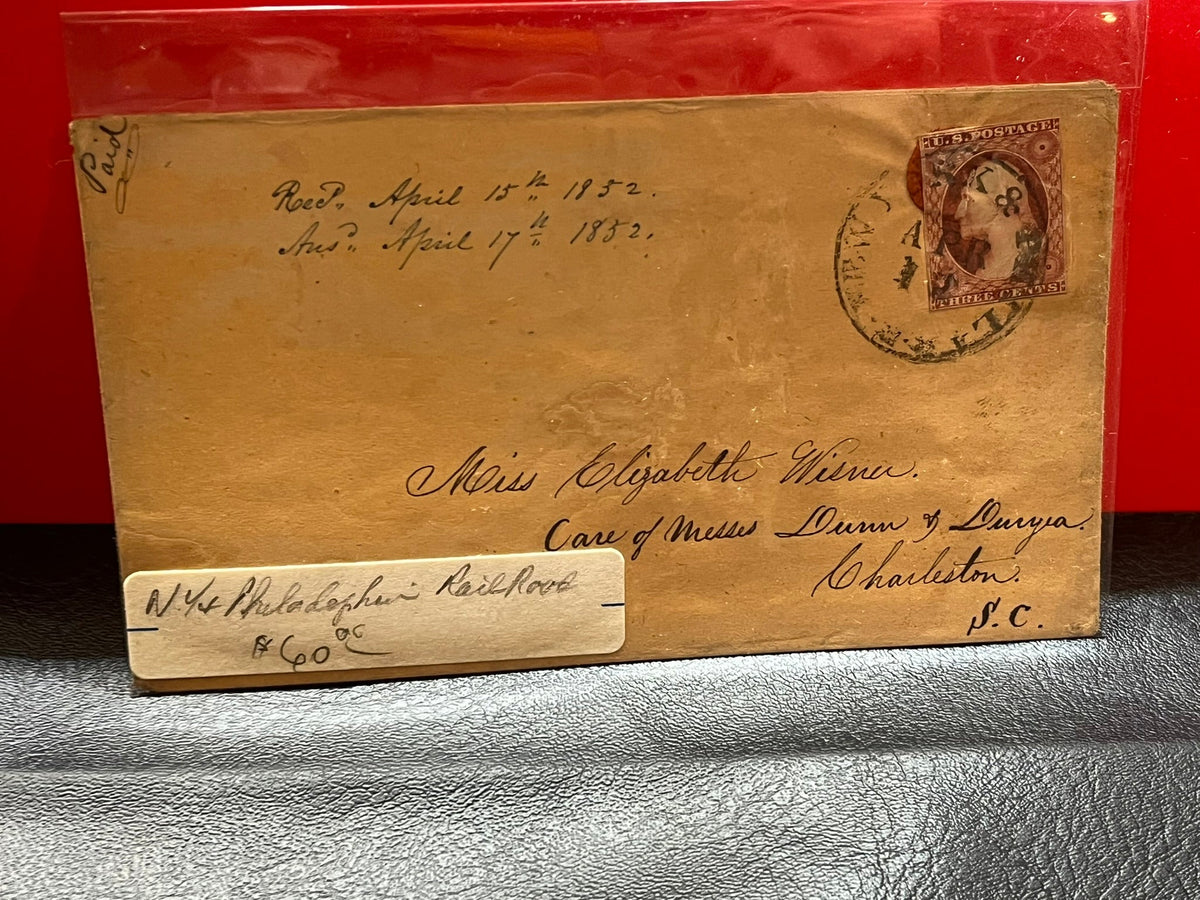 Paid
Recd. April 15th 1852.
Ansd. April 17th 1852.
U.S. POSTAGE
THREE CENTS
Miss Elizabeth Wisner.
Care of Messes Dunn & Duryea.
Charleston.
S.C.
N.Y & Philadelphia Rail Road
$60 00